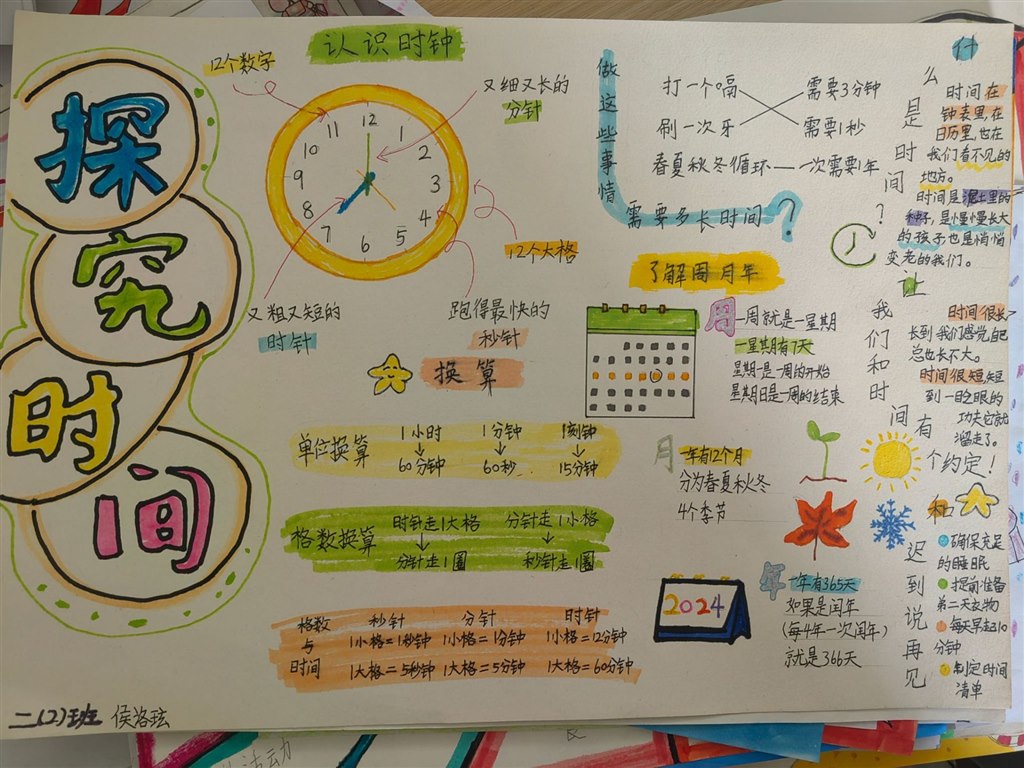 探
究
时
间
认识时钟
12个数字
又细又长的
分针
12
1
2
3
4
5
6
7
8
9
10
11
12个大格
又粗又短的
时针
跑得最快的
秒针
做这些事情
需要多长时间？
打一个嗝 需要3分钟
刷一次牙 需要1秒
春夏秋冬循环——一次需要1年
换算
单位换算
1小时 1分钟 1刻钟
↓ ↓ ↓
60分钟 60秒 15分钟
格数换算
时针走1大格 分针走1小格
↓ ↓
分针走1圈 秒针走1圈
格数 秒针 分针 时针
与 1小格=1秒钟 1小格=1分钟 1小格=12分钟
时间 1大格=5秒钟 1大格=5分钟 1大格=60分钟
了解周月年
周 一周就是一星期
一星期有7天
星期一是一周的开始
星期日是一周的结束
月 一年有12个月
分为春夏秋冬
4个季节
2024
年 一年有365天
如果是闰年
(每4年一次闰年)
就是366天
什么是时间?
时间在
钟表里,在
日历里,也在
我们看不见的
地方。
时间是泥土里的
种子,是慢慢长大
的孩子也是悄悄
变老的我们。
让我们和时间有个约定!
时间很长
长到我们感觉自己
总也长不大。
时间很短短
到一眨眼的
功夫它就
溜走了。
和迟到说再见
确保充足
的睡眠
提前准备
第二天衣物
每天早起10
分钟
制定时间
清单
二(2)班 侯洛玹
活动